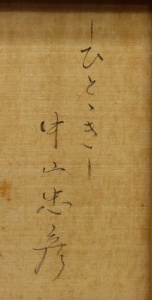 ―ひとゝき―
中山忠彦